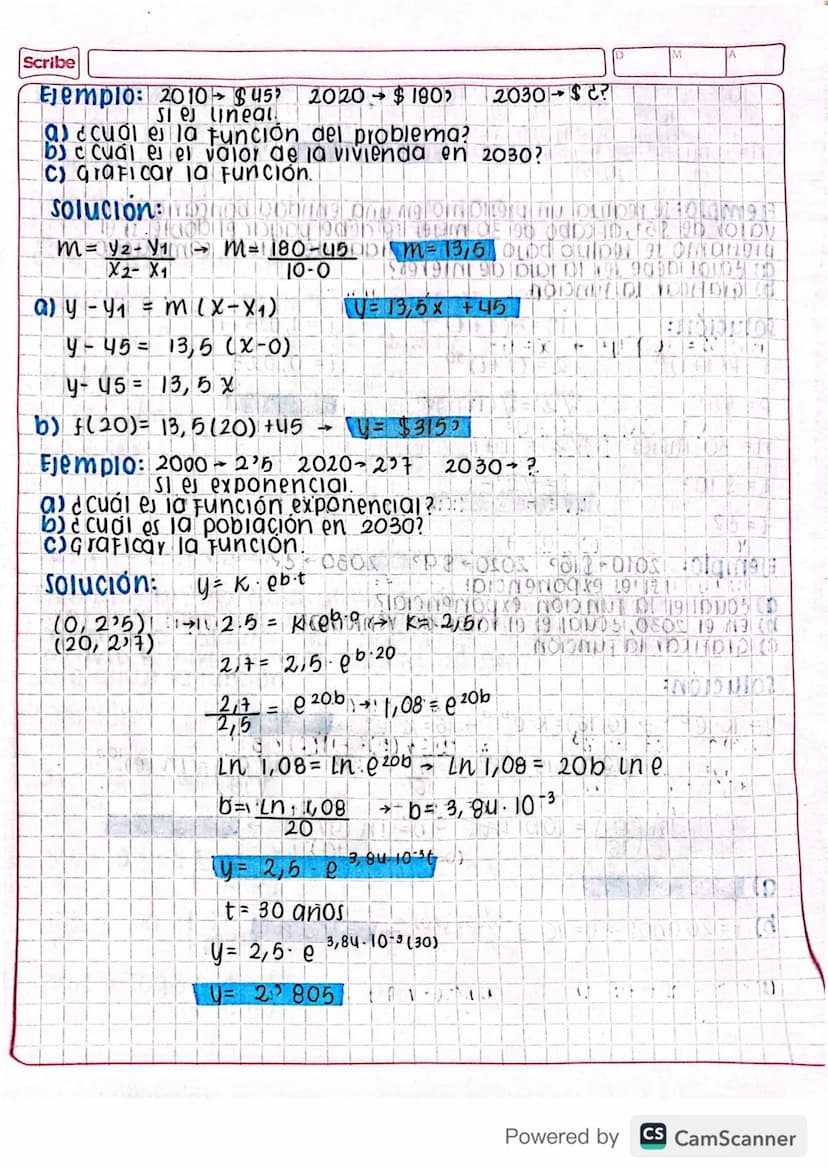 Scribe
D M A
Ejemplo: 2010→ $45' 2020→ $180' 2030→$ ¿?
si es lineal.
a) ¿cuál es la función del problema?
b) ¿cuál es el valor de la vivienda en 2030?
c) Graficar la función.
Solución:
m= y2-y1/x2-x1 → m= 180-45/10-0 m= 13,5
a) y-y1 = m(x-x1) y= 13,5x +45
y-45= 13,5(x-0)
y-45= 13,5x
b) f(20)= 13,5(20)+45 → y= $315'
Ejemplo: 2000→2'5 2020→2'7 2030→?
si es exponencial.
a) ¿cuál es la función exponencial?
b) ¿cuál es la población en 2030?
c) Graficar la función.
Solución: y= K·e^b·t
(0, 2'5) → 2.5 = K·e^b·0 → K= 2,5
(20, 2'7)
2,7= 2,5·e^b·20
2,7/2,5 = e^20b → 1,08= e^20b
Ln 1,08= Ln·e^20b → Ln 1,08= 20b Ln e
b= Ln 1,08/20 → b= 3,84·10^-3
y= 2,5·e^3,84·10^-3t
t= 30 años
y= 2,5·e^3,84·10^-3(30)
y= 2'805
Powered by CS CamScanner